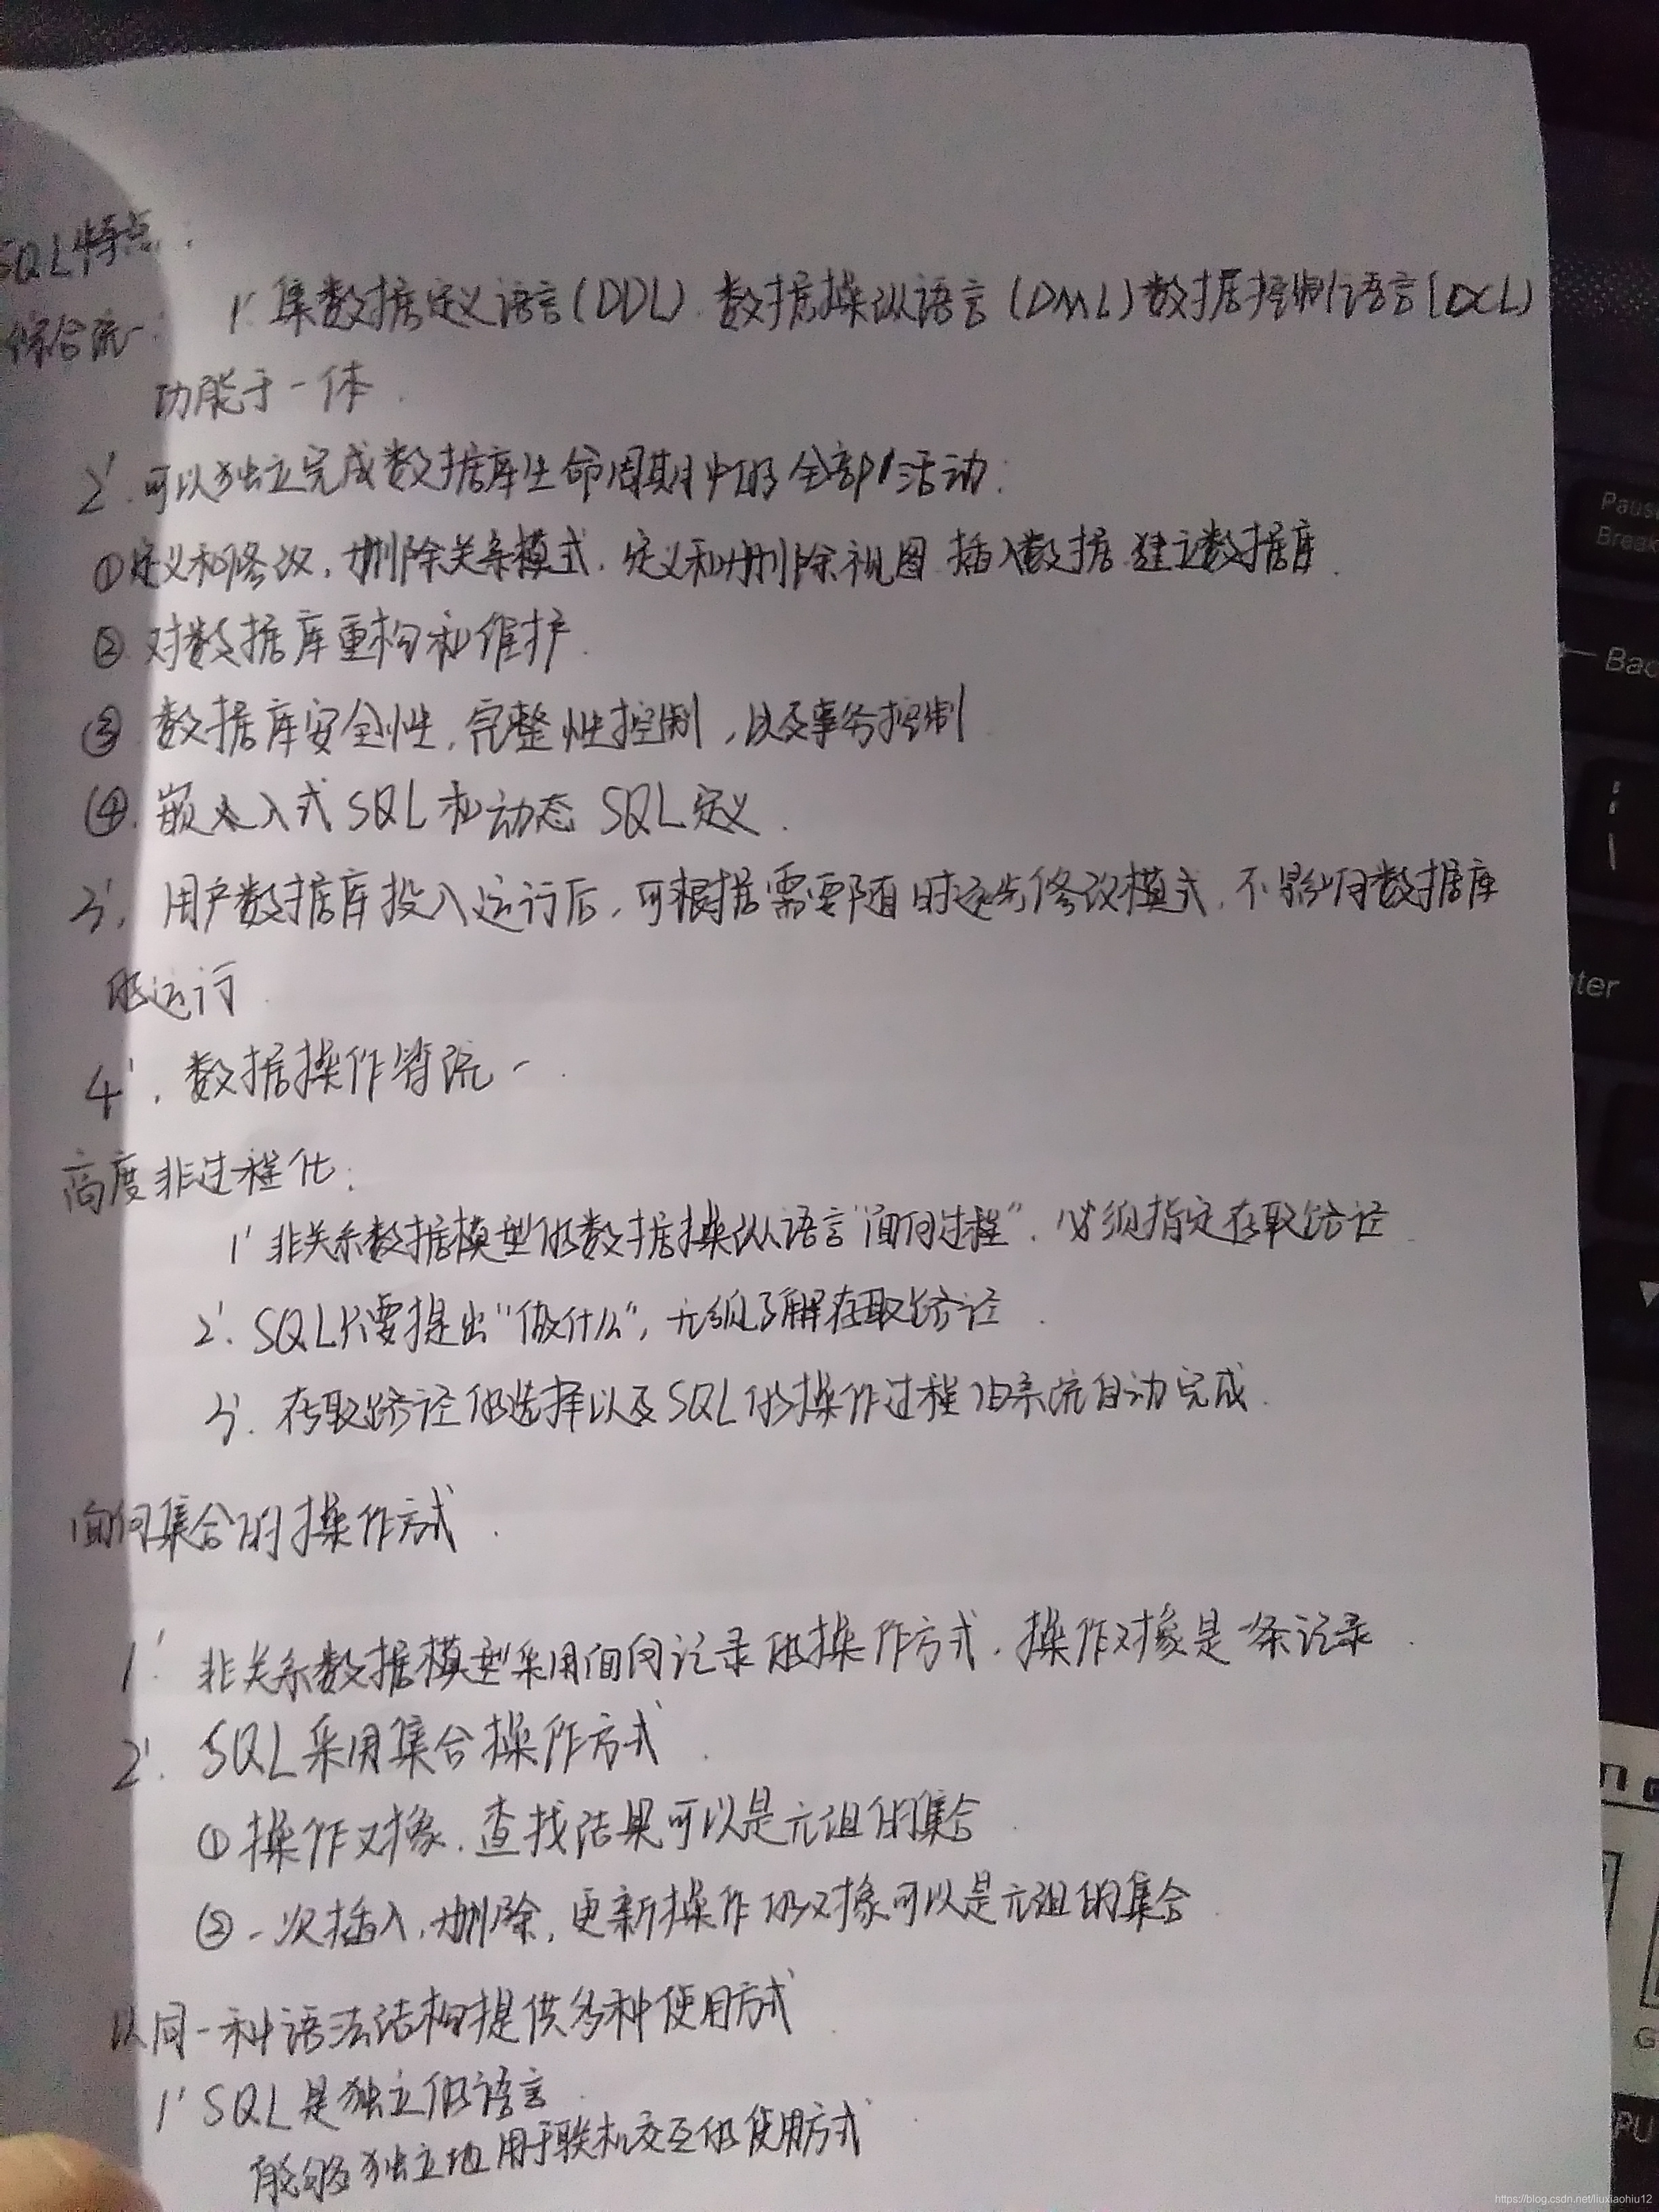 SQL特点：
综合统一：
1' 集数据定义语言(DDL).数据操纵语言(DML)数据控制语言(DCL)
功能于一体.
2'.可以独立完成数据库生命周期中的全部活动:
①定义和修改,删除关系模式.定义和删除视图.插入数据.建立数据库.
② 对数据库重构和维护.
③ 数据库安全性,完整性控制,以及事务控制
④.嵌入式SQL和动态SQL定义.
3'. 用户数据库投入运行后,可根据需要随时逐步修改模式.不影响数据库
的运行
4'. 数据操作符统一.
高度非过程化:
1' 非关系数据模型的数据操纵语言"面向过程".必须指定存取路径
2'. SQL只要提出"做什么",无须了解存取路径.
3'. 存取路径的选择以及SQL的操作过程由系统自动完成.
面向集合的操作方式.
1' 非关系数据模型采用面向记录的操作方式.操作对象是一条记录.
2'. SQL采用集合操作方式.
①操作对象.查找结果可以是元组的集合
②一次插入,删除,更新操作的对象可以是元组的集合
以同一种语法结构提供多种使用方式
1' SQL是独立的语言.
能够独立地用于联机交互的使用方式
Pause
Break
Bac
ter
PU
https://blog.csdn.net/liuxiaohiu12